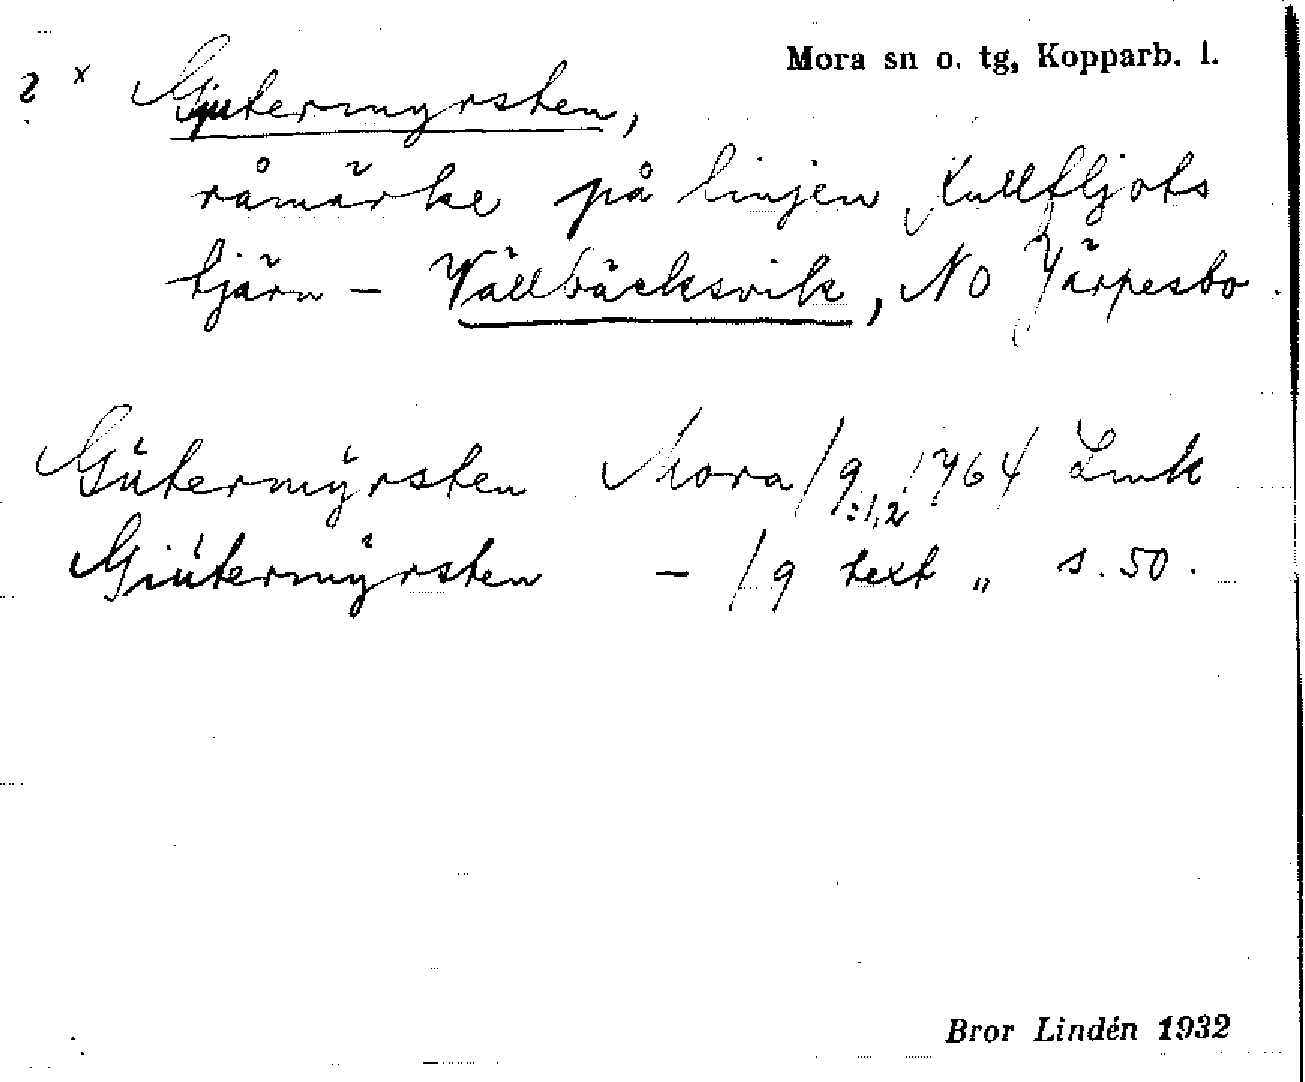 Mora sn o. tg, Kopparb. l.
? x Gjutermyrsten,
råmärke på linjen Kullfljots
tjärn – Vällbäcksvik, NO Järpesbo.
Gútermÿrsten Mora/9:1,2 1764 Lmk
Giútermÿrsten – /9 text „ s. 50.
Bror Lindén 1932